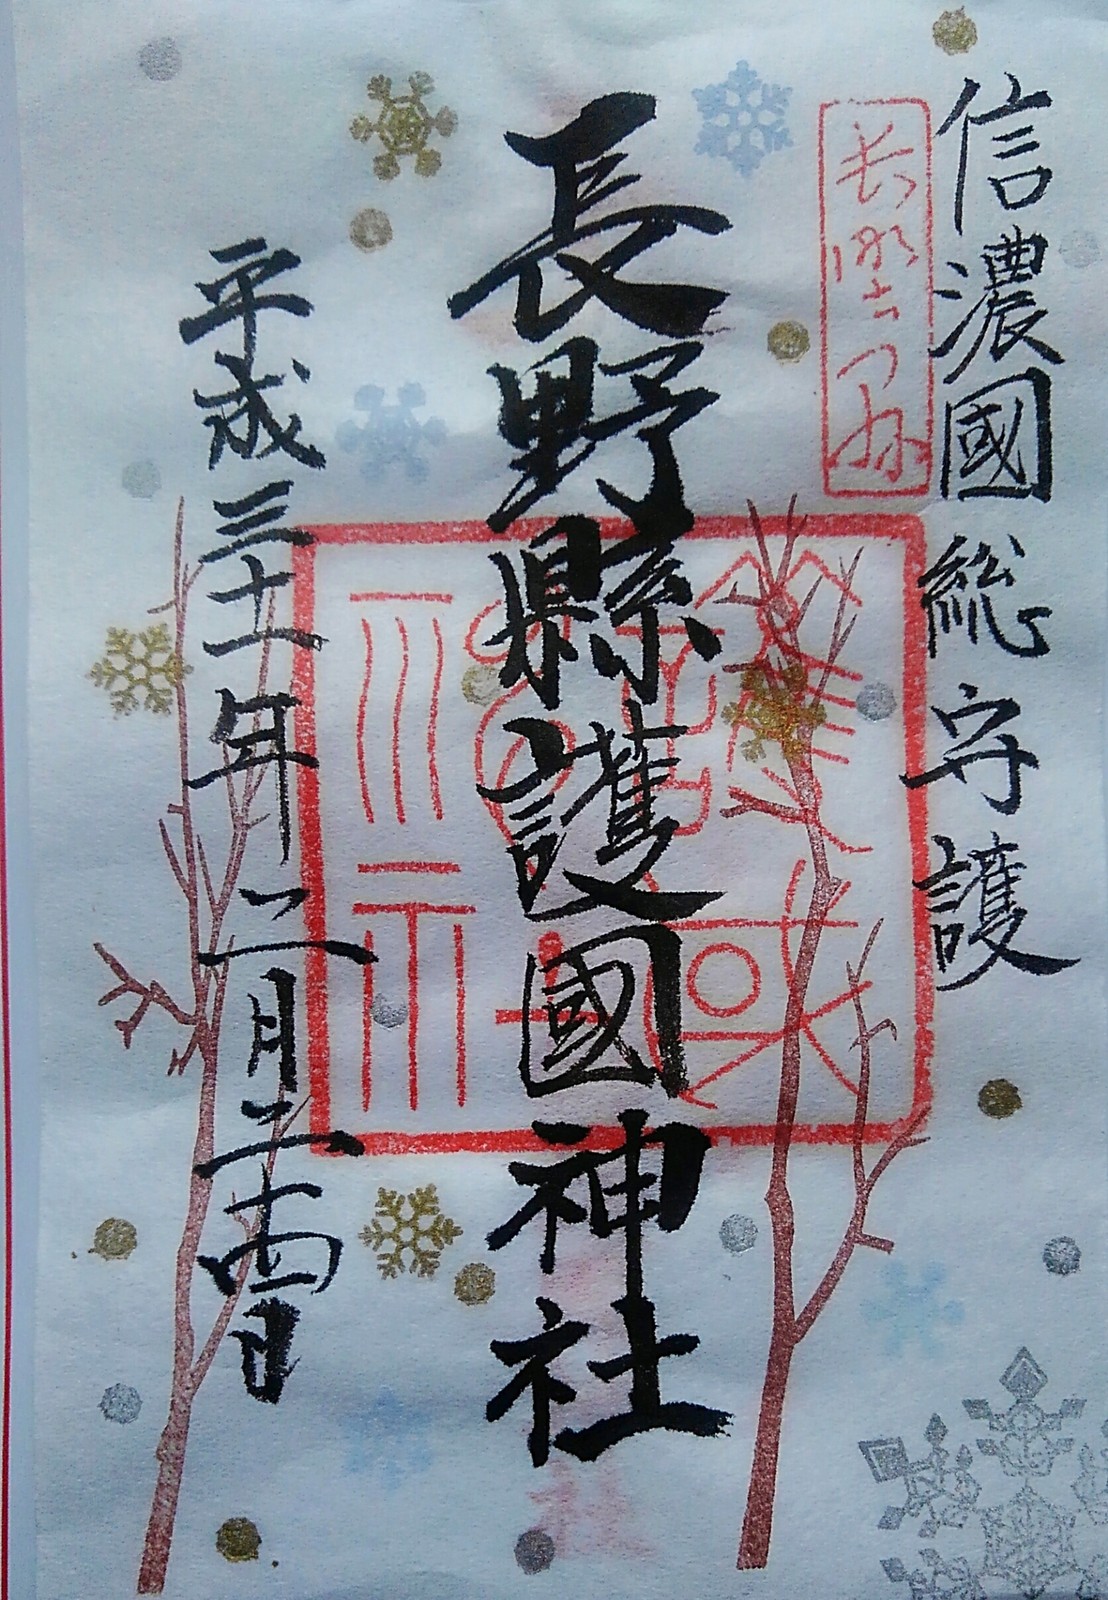 信濃國総守護
長野縣護國神社
平成三十一年二月二十四日